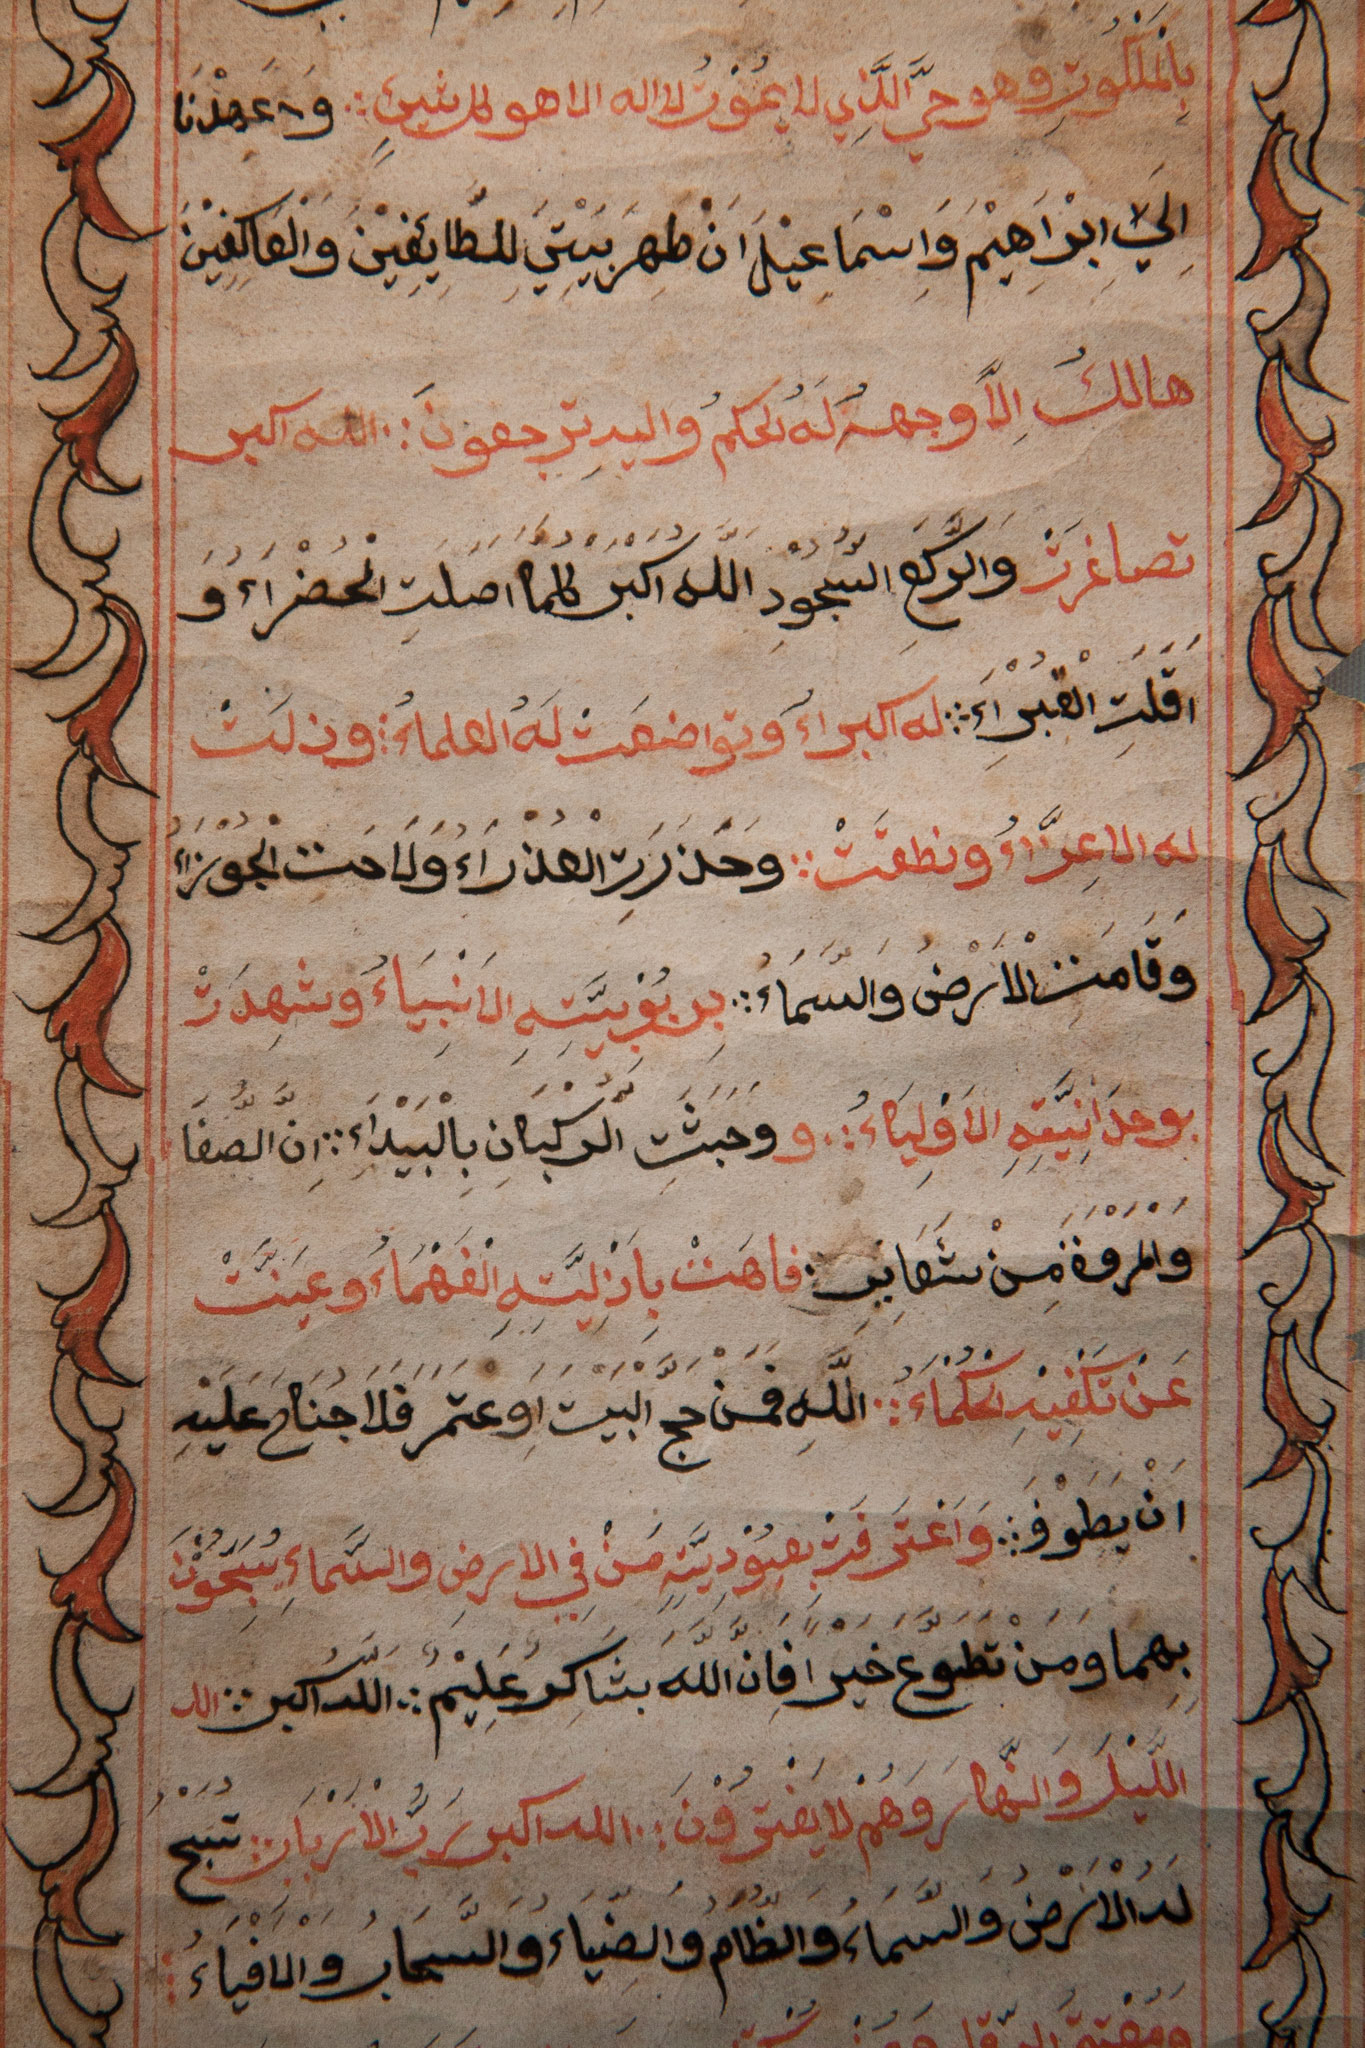 بِالْمَلَكُوتِ وهو حيَّ الَّذِي لا يَمُوْتُ لا اله الا هو كل شيئٍ ∴ وَعَهِدْنَا
اِلَيَ اِبْرَاهِيْمَ وَاِسْمَاعِيْلَ اَنْ طَهِرَ بَيْتِيَ لِلطَّائِفِيْنَ وَالْعَاكِفِيْنَ
هالكُ اِلاَّ وجههُ لَهُ لحكمُ واليه ترجعونَ ∴ الله اكبر
تصاغرَتْ وَالرُّكَّعِ السُّجُوْدِ اللّهُ اَكْبَرْ كُلَّمَا اَصَلَتِ الْخُضْرَاءُ وَ
اَقَلَتِ الْغَبْرَاءُ ∴ له اكبراءُ وتواضعَتْ لَهُ العلماءُ ∴ وذلَتْ
له الاعِزَّاءُ ونطقَتْ ∴ وَحَذَرَتِ الْعُذْرَاءُ وَلَاحَتْ الْجَوْزَاءُ
وَقَامَتْ الْاَرْضُ وَالسَّمَاءُ ∴ بِربُوْبِيَّتِهِ الاَنْبِيَاءُ وشهِدَتْ
بوحدَانِيَّتِهِ الاَوْلِيَاءُ ∴ و وَحَبَثَتِ الرُّكْبَانِ بِالْبَيْدَاءِ ∴ اِنَّ الصَّفَا
وَالْمَرْوَةَ مِنْ شَعَائِرِ ∴ فاهَتْ بِاَزْلِيَّتِهِ الْفَهْمَاءُ وعيَنَتْ
عَنْ تَكْفِيْهِ الحُكْمَاءُ ∴ اللَّهِ فَمَنْ حَجَّ الْبَيْتَ اَوِعْتَمَرَ فَلَا جُنَاحَ عَلَيْهِ
اَنْ يَطَوَّفَ ∴ وَاَعْتَرَفَتْ بِعبُوْدِيَّتِهِ مَنْ فِي الارضِ والسَّماءِ يُسَبِّحُوْنَ
بِهِمَا وَمَنْ تَطَوَّعَ خَيْرًا فَاِنَّ اللَّهَ شَاكِرٌ عَلِيْمٌ ∴ اللّهُ اَكبر ∴ الله
اللَّيْلَ وَالنَّهَارَ وَهُمْ لا يَفْتَرُوْنَ ∴ الله اكبر رَبُّ الْاَرْبَابِ ∴ تُسَبِّحُ
لَهُ الْاَرْضُ وَالسَّمَاءُ وَالظَّلَامُ وَالضِّيَاءُ وَالسَّحَابُ وَالْافْيَاءُ ∴